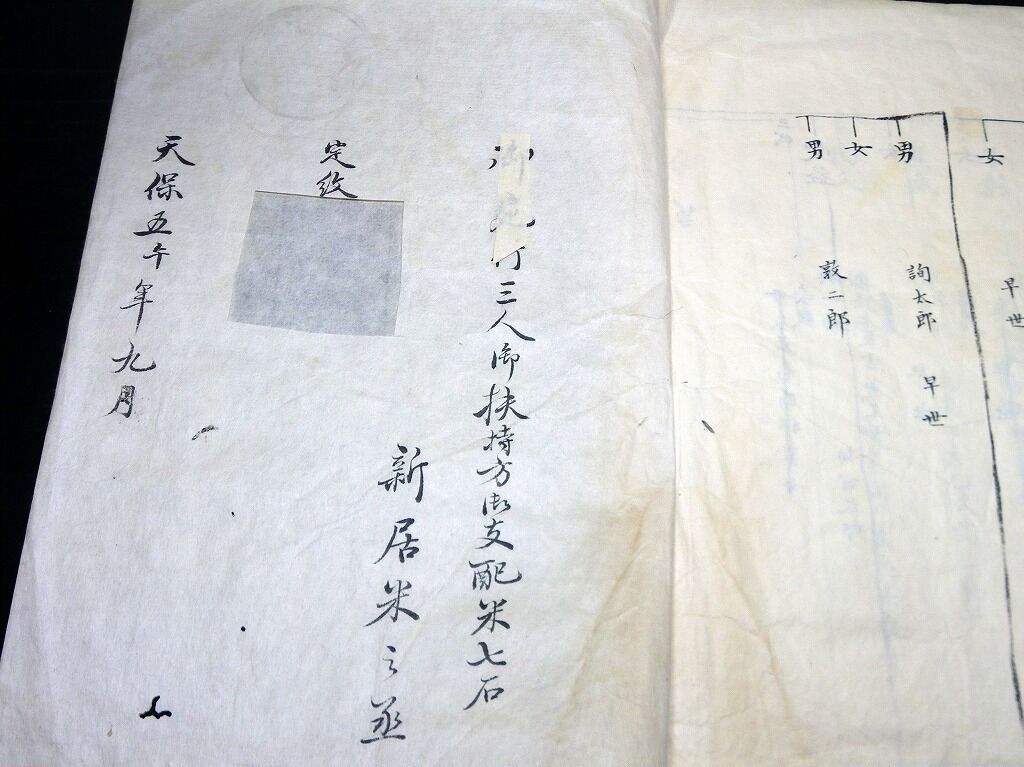 女 早世
男 詢太郎 早世
女
男 敦二郎
御 行三人御扶持方御支配米七石
新居米之丞
定紋
天保五午年九月